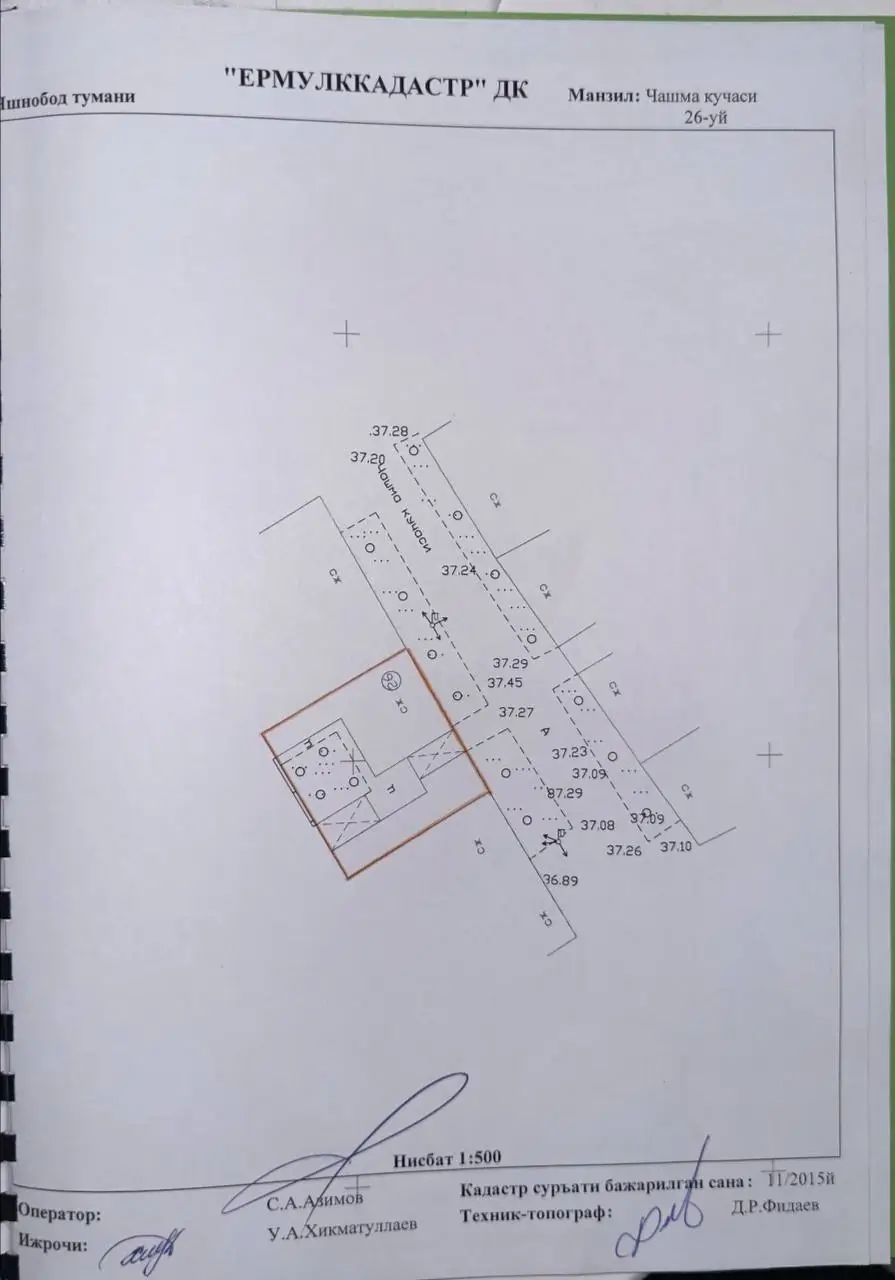 "ЕРМУЛККАДАСТР" ДК
шнобод тумани
Манзил: Чашма кучаси
26-уй
.37.28
37.20
Чашма кучаси
сх
37.24
сх
сх
37.29
37.45
сх
26
сх
37.27
А
37.23
37.09
37.29
сх
п
п
37.08
37.09
37.26
37.10
сх
36.89
сх
Нисбат 1:500
Оператор:
С.А.Азимов
Кадастр суръати бажарилган сана : 11/2015й
Ижрочи:
У.А.Хикматуллаев
Техник-топограф:
Д.Р.Фидаев